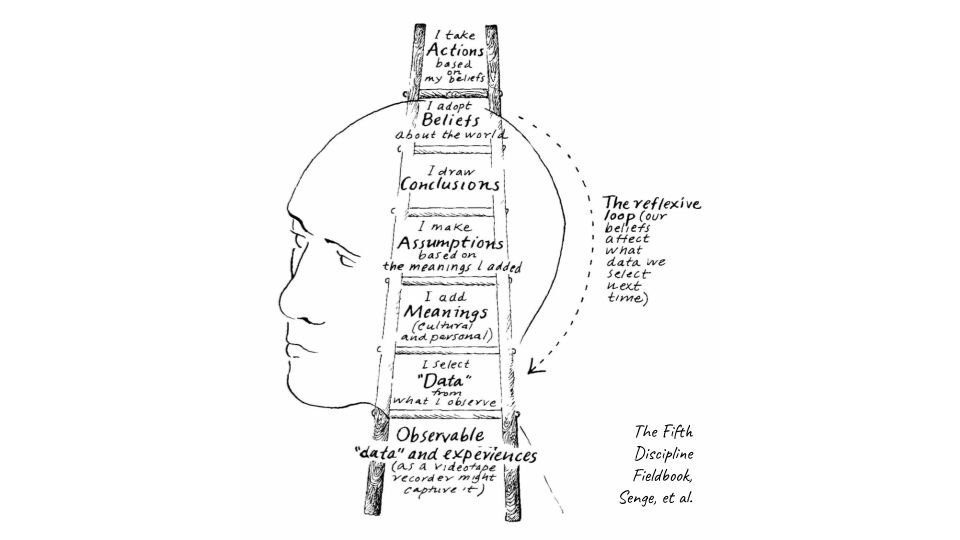 I take
Actions
based
on
my beliefs
I adopt
Beliefs
about the world
I draw
Conclusions
I make
Assumptions
based on
the meanings I added
I add
Meanings
(cultural
and personal)
I select
"Data"
from
what I observe
Observable
"data" and experiences
(as a videotape
recorder might
capture it)
The reflexive
loop (our
beliefs
affect
what
data we
select
next
time)
The Fifth
Discipline
Fieldbook,
Senge, et al.